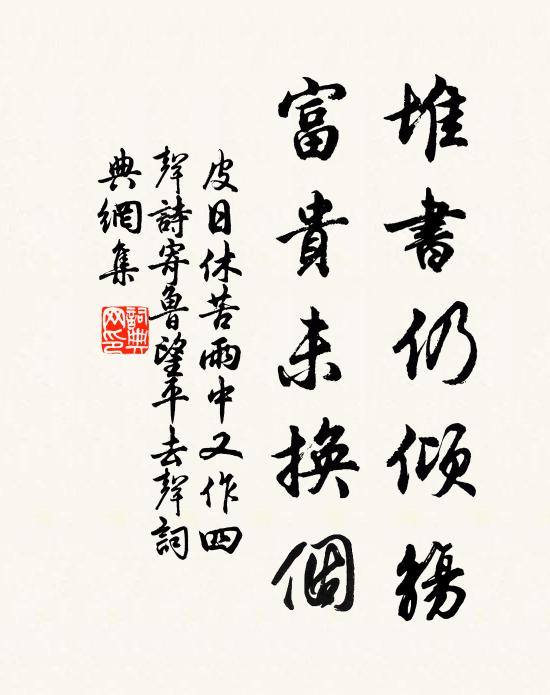 堆書仍傾觴
富貴未換個
皮日休苦雨中又作四
聲詩寄魯望平去聲詞
典網集
詞典网印